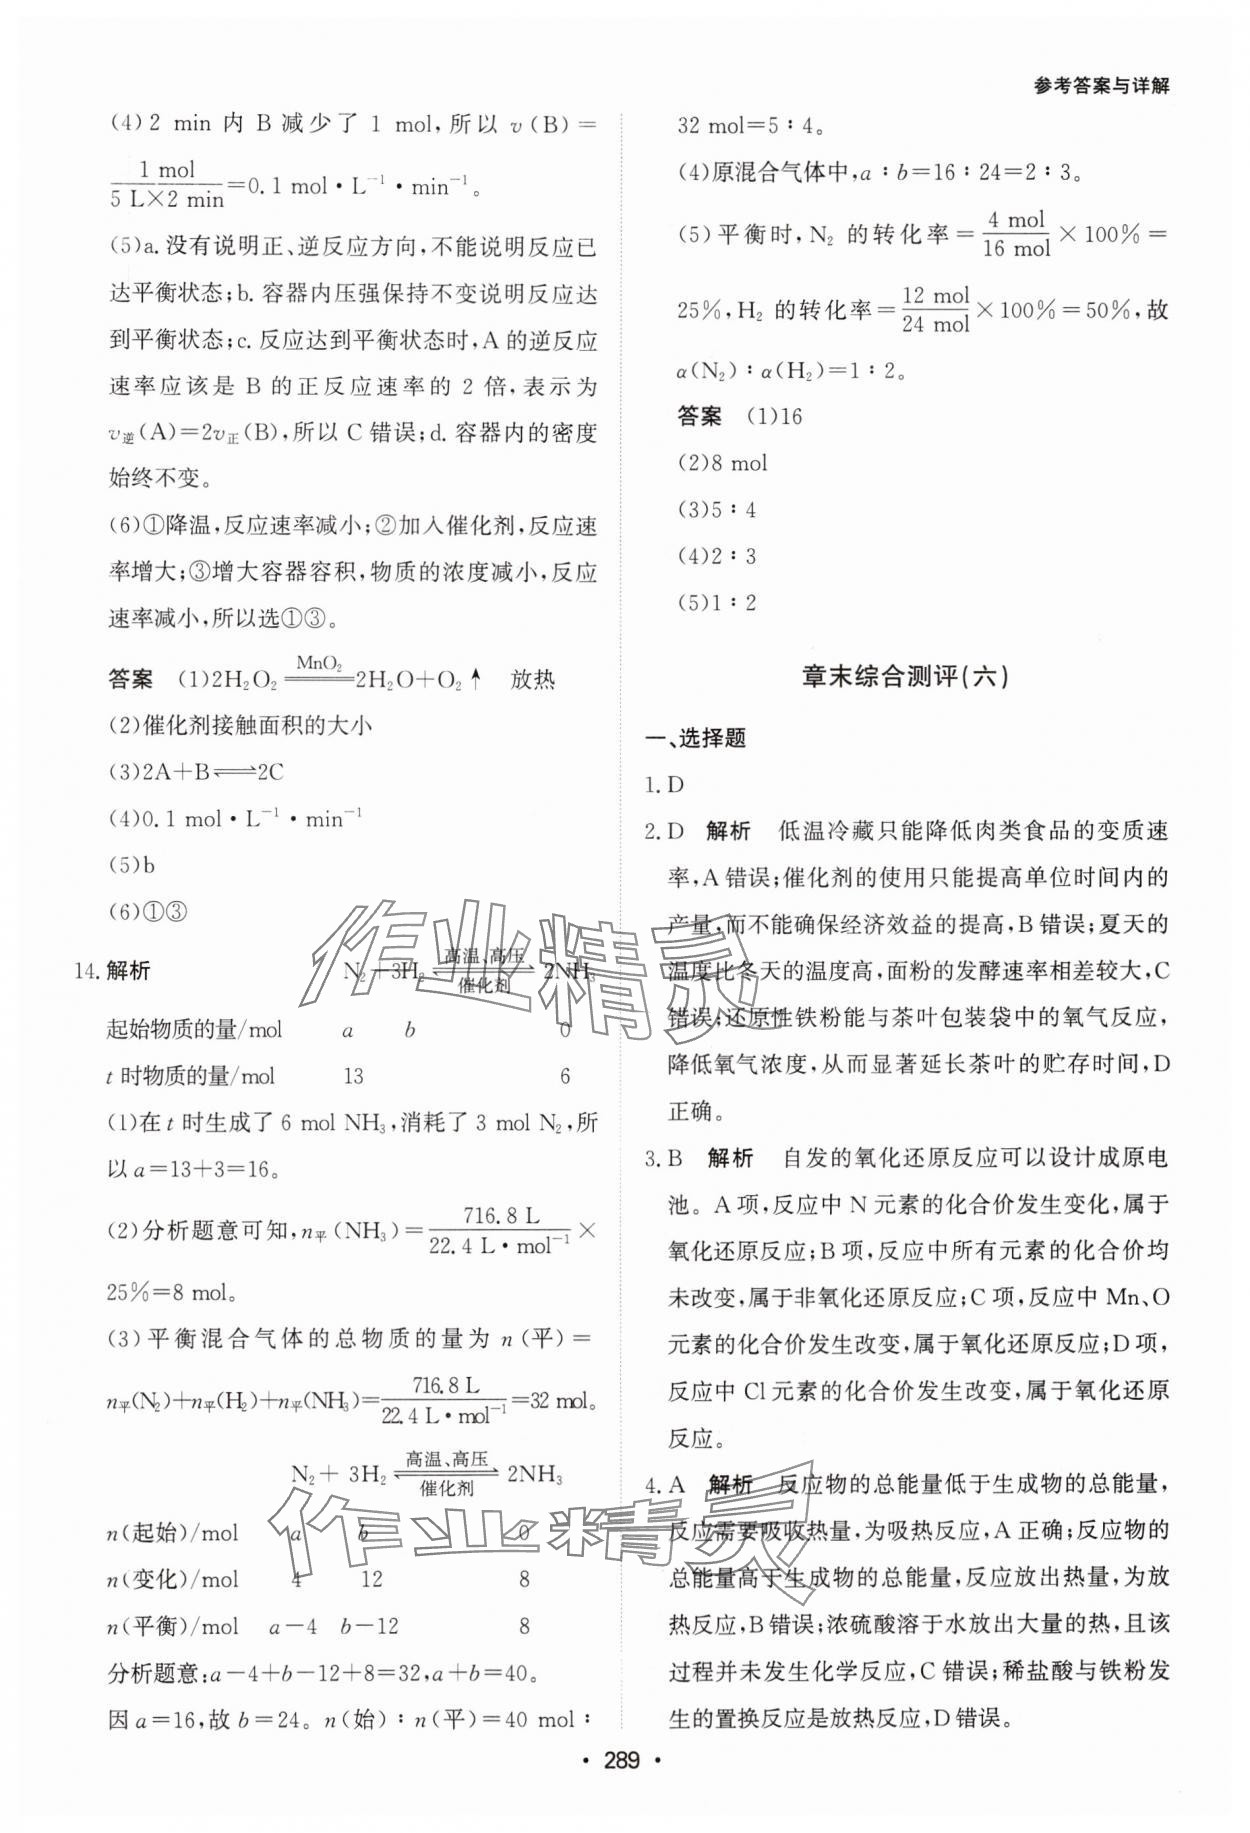 参考答案与详解
(4)2 min 内 B 减少了 1 mol,所以 v(B)=
1 mol
5 L×2 min =0.1 mol·L⁻¹·min⁻¹。
(5)a.没有说明正、逆反应方向,不能说明反应已
达平衡状态;b.容器内压强保持不变说明反应达
到平衡状态;c.反应达到平衡状态时,A 的逆反应
速率应该是 B 的正反应速率的 2 倍,表示为
v逆(A)=2v正(B),所以 C 错误;d.容器内的密度
始终不变。
(6)①降温,反应速率减小;②加入催化剂,反应速
率增大;③增大容器容积,物质的浓度减小,反应
速率减小,所以选①③。
答案 (1)2H₂O₂ =MnO₂= 2H₂O+O₂↑ 放热
(2)催化剂接触面积的大小
(3)2A+B⇌2C
(4)0.1 mol·L⁻¹·min⁻¹
(5)b
(6)①③
14.解析 N₂+3H₂ ⇌(高温、高压 催化剂) 2NH₃
起始物质的量/mol a b 0
t 时物质的量/mol 13 6
(1)在 t 时生成了 6 mol NH₃,消耗了 3 mol N₂,所
以 a=13+3=16。
(2)分析题意可知,n平(NH₃)= 716.8 L / 22.4 L·mol⁻¹ ×
25%=8 mol。
(3)平衡混合气体的总物质的量为 n(平)=
n平(N₂)+n平(H₂)+n平(NH₃)= 716.8 L / 22.4 L·mol⁻¹ =32 mol。
N₂+ 3H₂ ⇌(高温、高压 催化剂) 2NH₃
n(起始)/mol a b 0
n(变化)/mol 4 12 8
n(平衡)/mol a-4 b-12 8
分析题意:a-4+b-12+8=32,a+b=40。
因 a=16,故 b=24。n(始)∶n(平)=40 mol∶
32 mol=5∶4。
(4)原混合气体中,a∶b=16∶24=2∶3。
(5)平衡时,N₂ 的转化率= 4 mol / 16 mol ×100%=
25%,H₂ 的转化率= 12 mol / 24 mol ×100%=50%,故
α(N₂)∶α(H₂)=1∶2。
答案 (1)16
(2)8 mol
(3)5∶4
(4)2∶3
(5)1∶2
章末综合测评(六)
一、选择题
1.D
2.D 解析 低温冷藏只能降低肉类食品的变质速
率,A 错误;催化剂的使用只能提高单位时间内的
产量,而不能确保经济效益的提高,B 错误;夏天的
温度比冬天的温度高,面粉的发酵速率相差较大,C
错误;还原性铁粉能与茶叶包装袋中的氧气反应,
降低氧气浓度,从而显著延长茶叶的贮存时间,D
正确。
3.B 解析 自发的氧化还原反应可以设计成原电
池。A 项,反应中 N 元素的化合价发生变化,属于
氧化还原反应;B 项,反应中所有元素的化合价均
未改变,属于非氧化还原反应;C 项,反应中 Mn、O
元素的化合价发生改变,属于氧化还原反应;D 项,
反应中 Cl 元素的化合价发生改变,属于氧化还原
反应。
4.A 解析 反应物的总能量低于生成物的总能量,
反应需要吸收热量,为吸热反应,A 正确;反应物的
总能量高于生成物的总能量,反应放出热量,为放
热反应,B 错误;浓硫酸溶于水放出大量的热,且该
过程并未发生化学反应,C 错误;稀盐酸与铁粉发
生的置换反应是放热反应,D 错误。
作业精灵
作业精灵
·289·